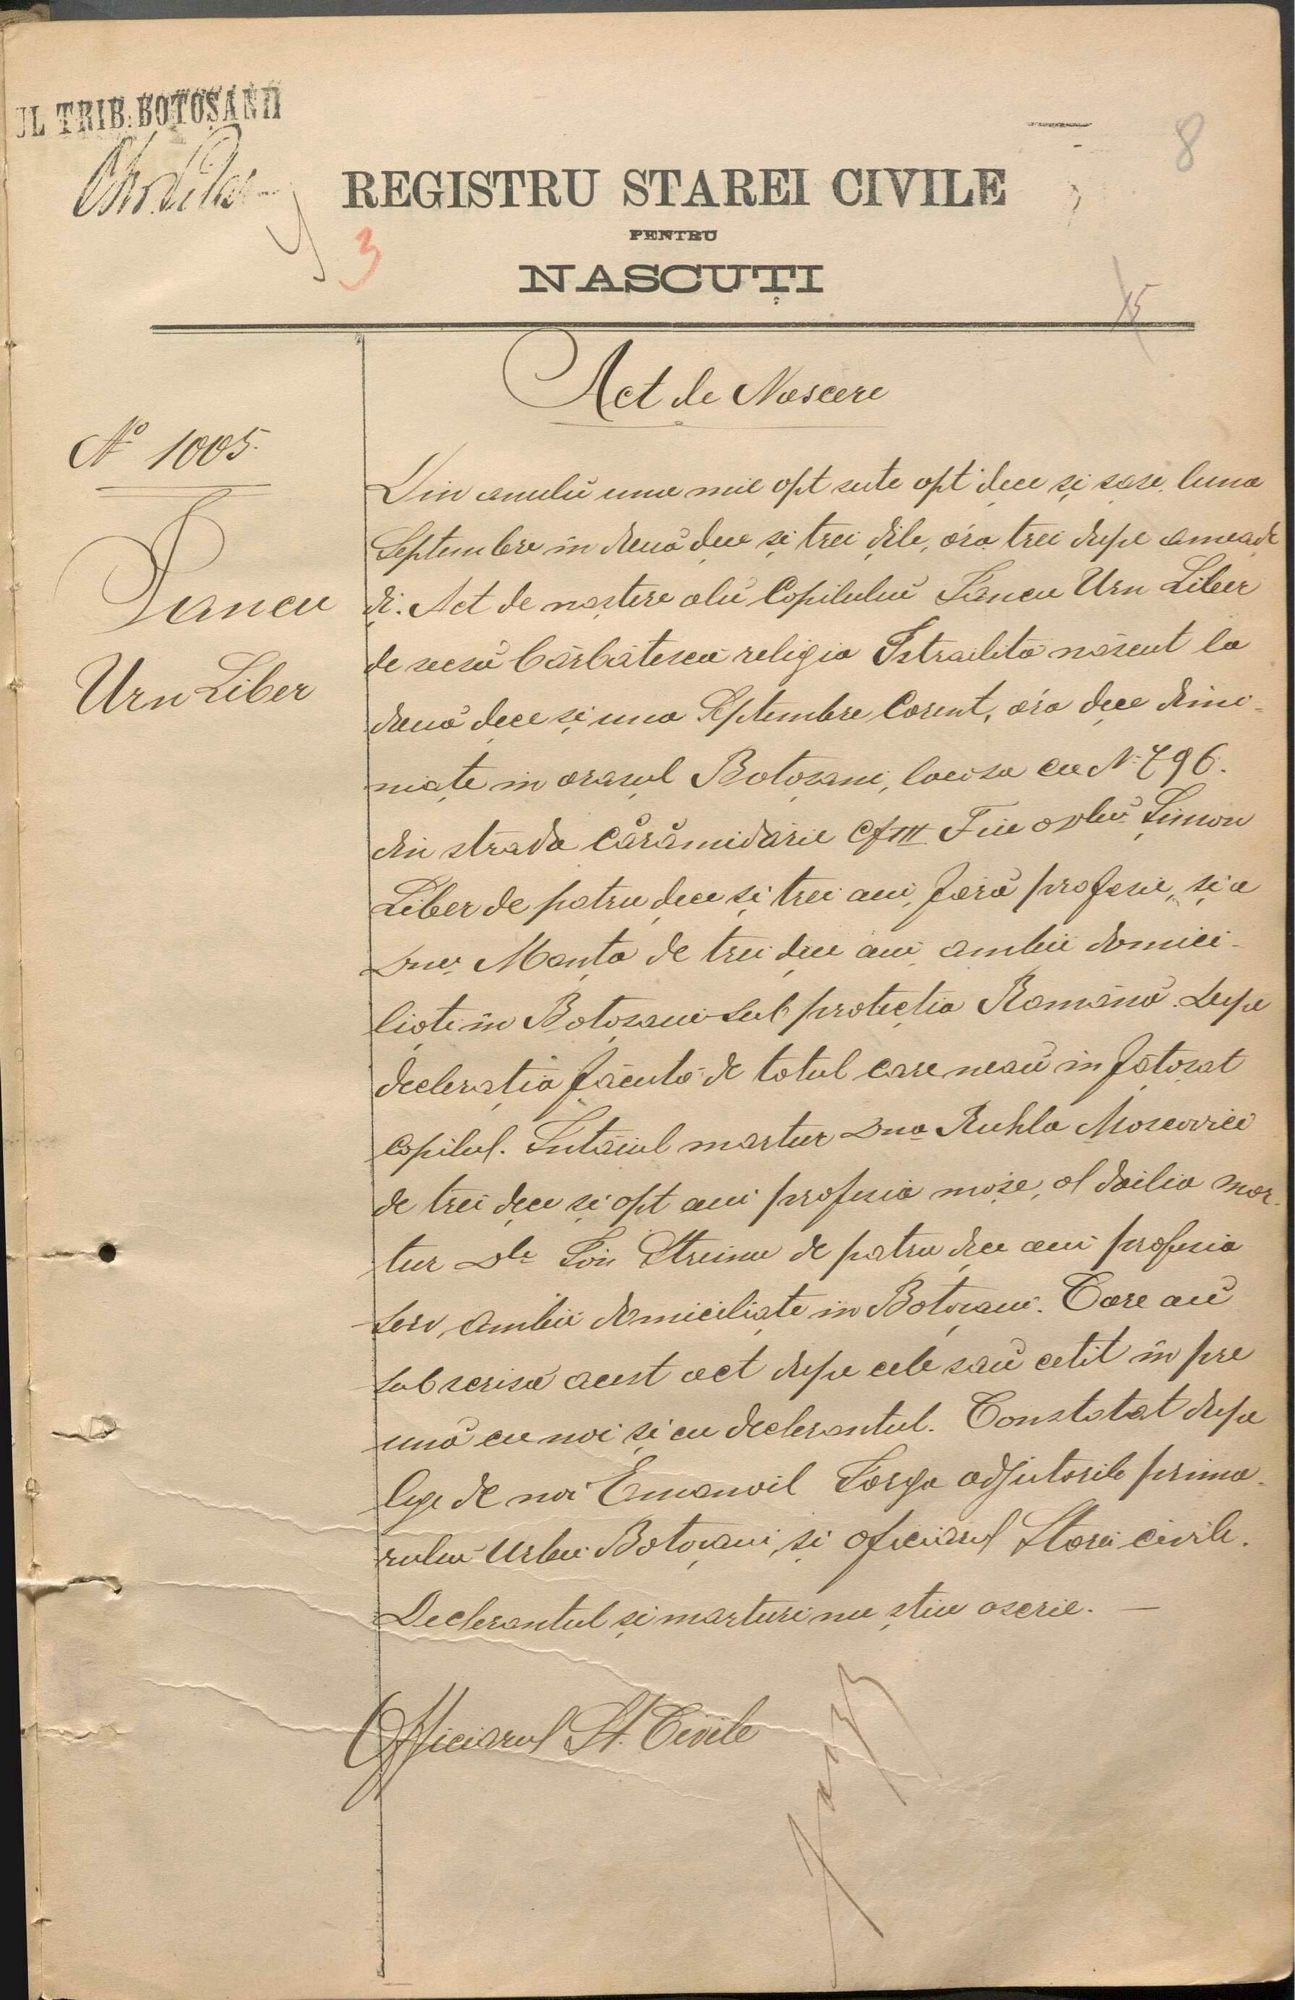 UL TRIB. BOTOȘANII
8
REGISTRU STAREI CIVILE
PENTRU
3
NASCUȚI
15
Act de Nascere
No 1005.
Iancu
Urn Liber
Din anulŭ una mie opt sute opt dece și șase luna
Septembre in două dece și trei dile, ora trei dupe ameade
di. Act de naștere alŭ Copilului Iancu Urn Liber
de secsŭ bărbătescŭ religia Istraelită născut la
două dece și una Septembre Corent, ora dece dimi-
niațe in orașul Botoșani, la casa cu No 796.
din strada Cărămidărie Cf III Fiu a Dlui Simon
Liber de patru dece și trei ani, fără profesie, și a
Dnei Manța de trei dece ani, ambii domici-
liați in Botoșani sub protecția Română. Dupe
declerația făcută de tatul care neaŭ infățoșat
copilul. Intăiul martur Dna Ruhla Moscovici
de trei dece și opt ani profesia moșe, al doilia mar-
tur Dlu Ion Streinu de patru dece ani profesia
serv, ambii domiciliațe in Botoșani. Care aŭ
subscrisŭ acest act dupe cele saŭ cetit in pre
ună cu noi și cu declerantul. Constatat dupa
lege de noi Emanoil Iorga adjutorile prima-
rului Urbei Botoșani și oficiarul Starei civile.
Declerantul și marturi nu știu a scrie. —
Officiarul St. Civile